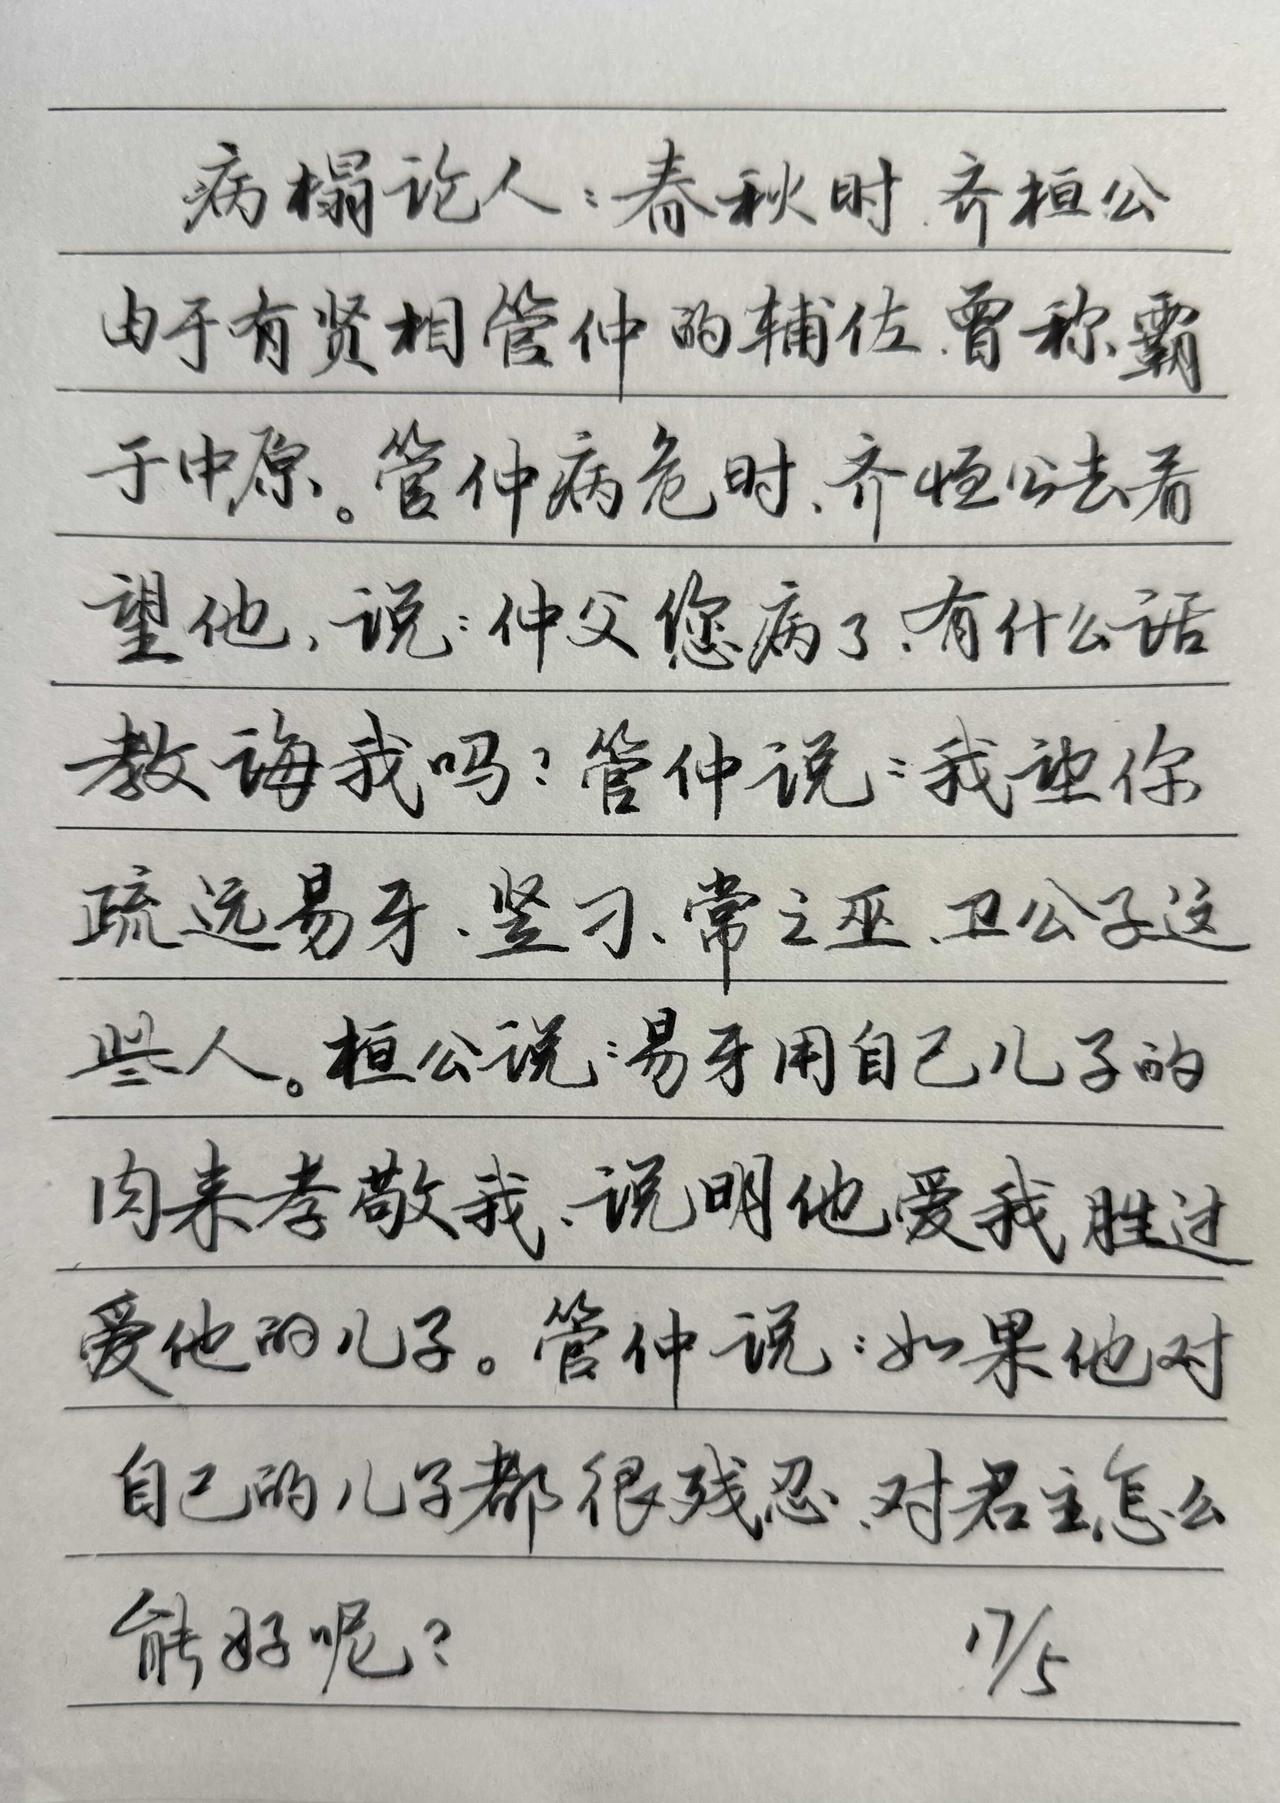 病榻论人：春秋时、齐桓公
由于有贤相管仲的辅佐、曾称霸
于中原。管仲病危时、齐恒公去看
望他、说：仲父您病了、有什么话
教诲我吗？管仲说：我望你
疏远易牙、竖刁、常之巫、卫公子这
些人。桓公说：易牙用自己儿子的
肉来孝敬我、说明他爱我胜过
爱他的儿子。管仲说：如果他对
自己的儿子都很残忍、对君主怎么
能好呢？ 17/5